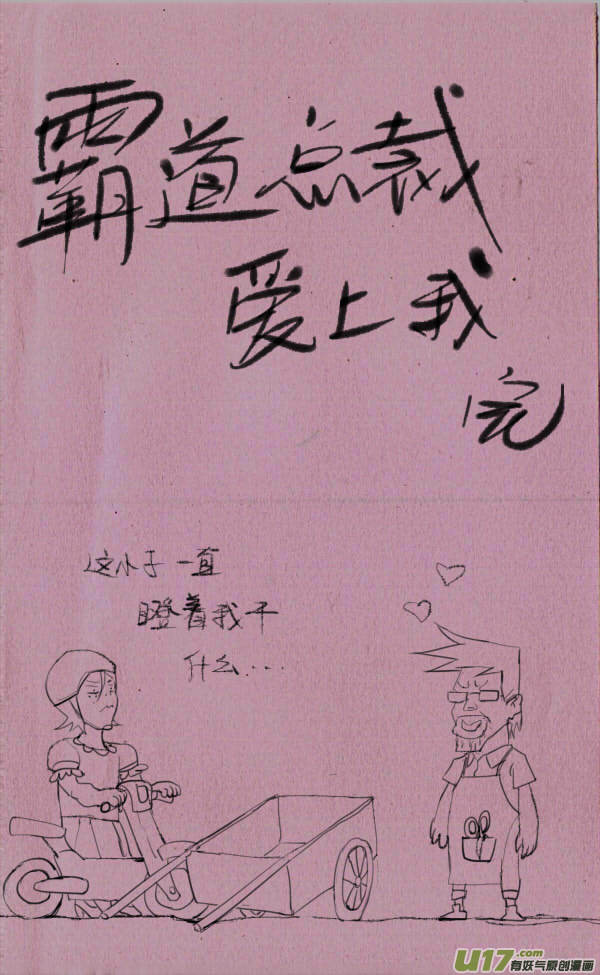 霸道总裁
爱上我
完
这小子一直
瞪着我干
什么...
U17.com
有妖气原创漫画